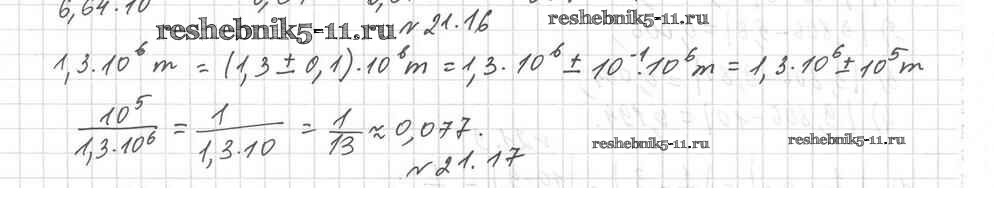 6,64·10
reshebnik5-11.ru № 21.16 reshebnik5-11.ru
1,3·10⁶ m = (1,3 ± 0,1)·10⁶ m = 1,3·10⁶ ± 10⁻¹·10⁶ m = 1,3·10⁶ ± 10⁵ m
10⁵/1,3·10⁶ = 1/1,3·10 = 1/13 ≈ 0,077.
reshebnik5-11.ru reshebnik5-11.ru
№ 21.17